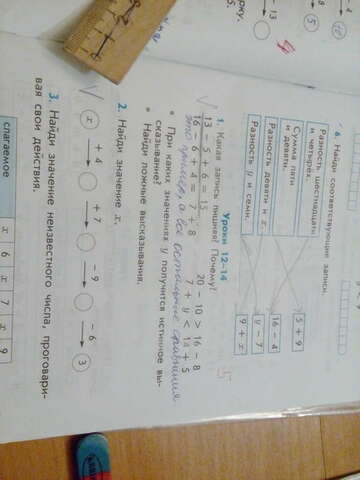 6. Найди соответствующие записи.
Разность шестнадцати и четырёх.
Сумма пяти и девяти.
Разность девяти и x.
Разность y и семи.
5 + 9
16 − 4
y − 7
9 + x
Уроки 12–14
1. Какая запись лишняя? Почему?
13 − 5 + 6 = 15
20 − 10 > 16 − 8
16 − 6 − 4 = 7 + 8
7 + y < 14 + 5
это пример, а все остальные сравнения
• При каких значениях y получится истинное высказывание?
• Найди ложные высказывания.
2. Найди значение x.
x + 4 + 7 − 9 − 6 3
3. Найди значение неизвестного числа, проговаривая свои действия.
слагаемое x 6 x 7 x 9